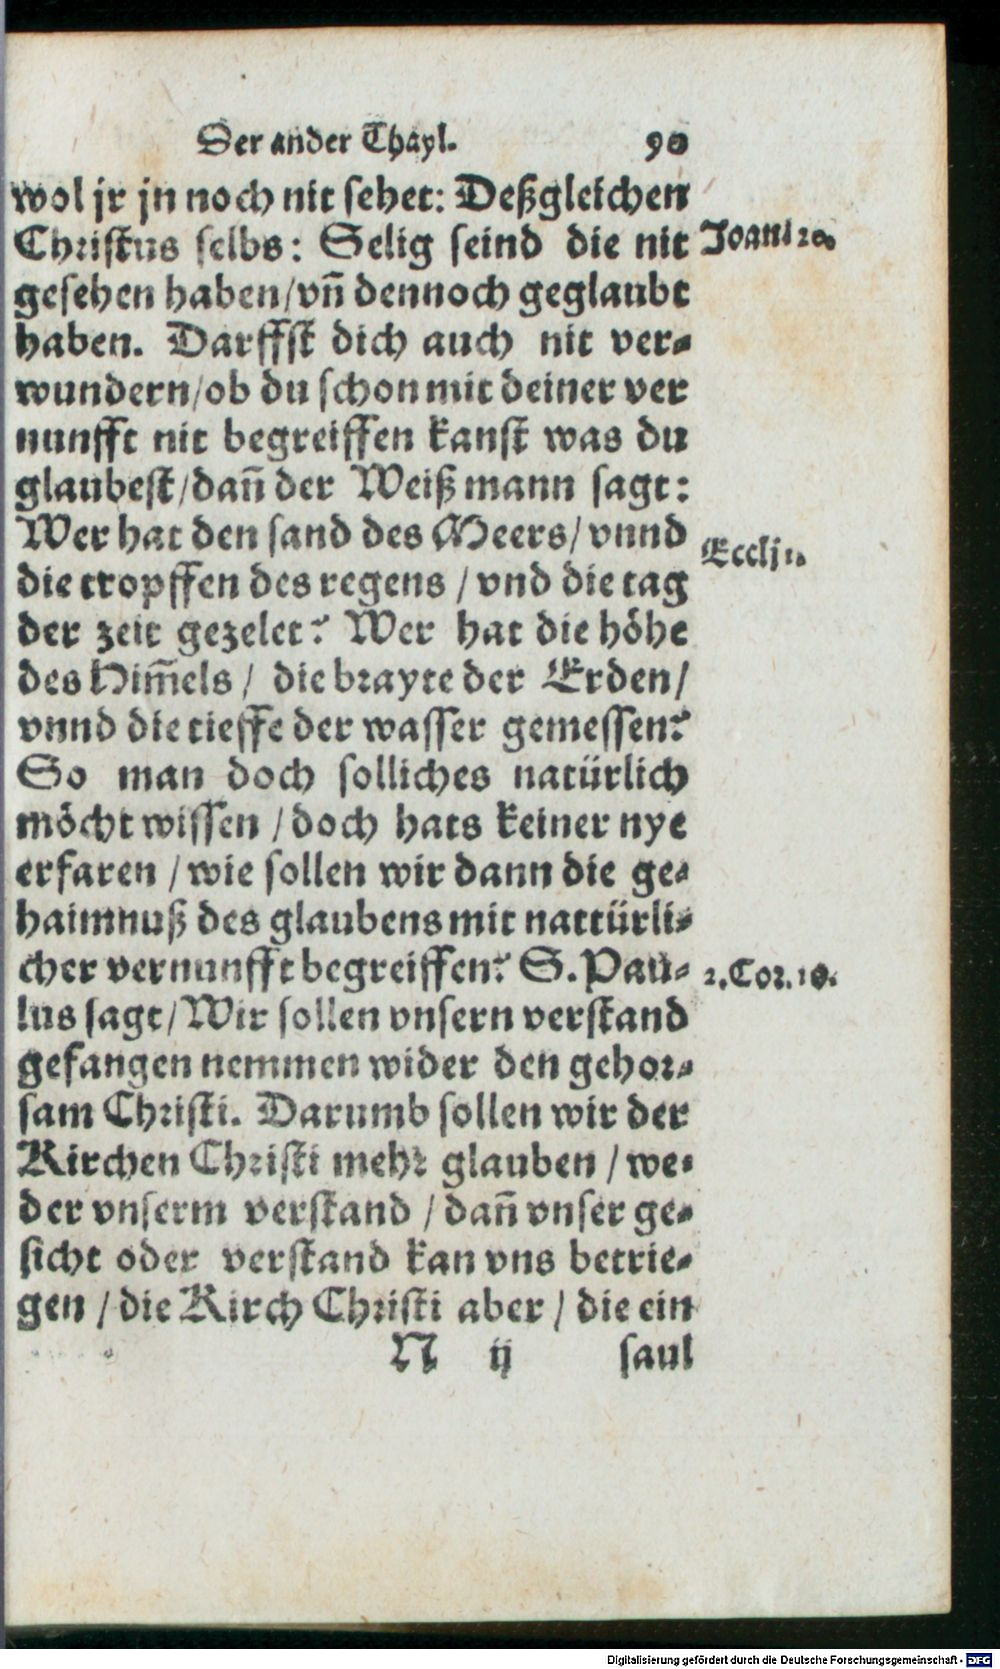 Der ander Thayl. 90
wol jr jn noch nit sehet: Deßgleichen
Christus selbs: Selig seind die nit
Joani 20.
gesehen haben/vñ dennoch geglaubt
haben. Darffst dich auch nit ver-
wundern/ob du schon mit deiner ver
nunfft nit begreiffen kanst was du
glaubest/dañ der Weiß mann sagt:
Wer hat den sand des Meers/ vnnd
Eccli 1.
die tropffen des regens / vnd die tag
der zeit gezelet? Wer hat die höhe
des Him̃els / die brayte der Erden/
vnnd die tieffe der wasser gemessen?
So man doch solliches natürlich
möcht wissen / doch hats keiner nye
erfaren / wie sollen wir dann die ge-
haimnuß des glaubens mit nattürli-
cher vernunfft begreiffen? S. Pau-
2. Cor. 10.
lus sagt/Wir sollen vnsern verstand
gefangen nemmen wider den gehor-
sam Christi. Darumb sollen wir der
Kirchen Christi mehr glauben / we-
der vnserm verstand / dañ vnser ge-
sicht oder verstand kan vns betrie-
gen / die Kirch Christi aber / die ein
N ij saul
Digitalisierung gefördert durch die Deutsche Forschungsgemeinschaft - DFG